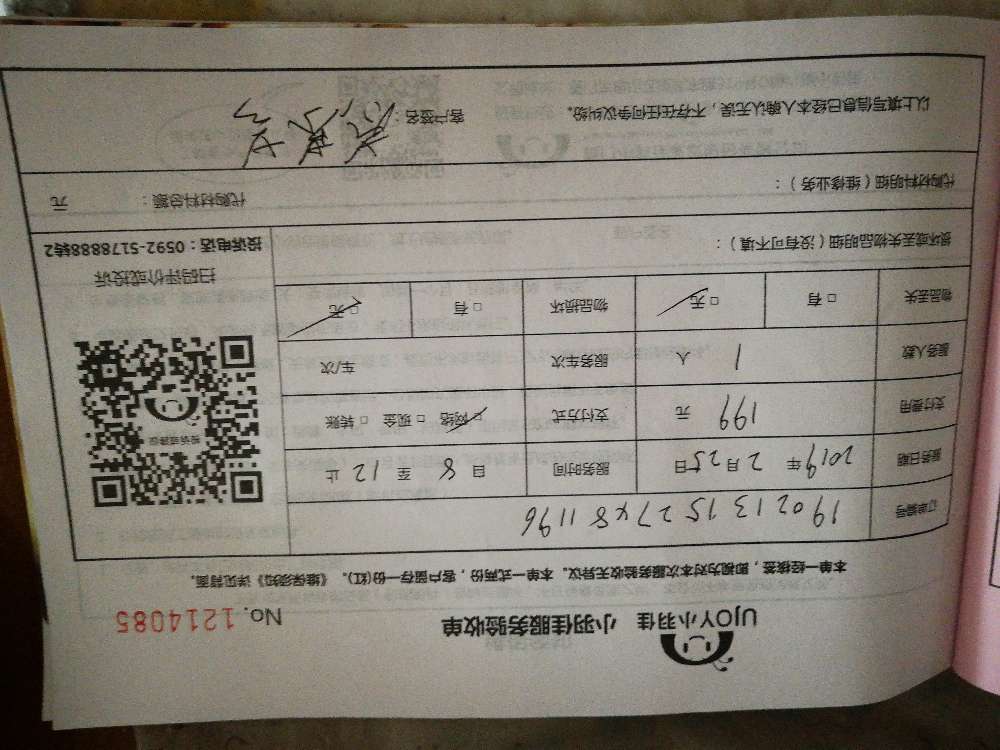 UJOY小羽佳 小羽佳服务验收单 No. 1214085
本单一经核签，即视为对本次服务验收无异议。本单一式两份，客户留存一份(红)。《维保须知》详见背面。
订单编号 19021315274481196
服务日期 2019年 2月25日 服务时间 自 8 至 12 止
支付费用 199 元 支付方式 □网络 □现金 □转账
服务人数 1 人 服务车次 车/次
物品丢失 □有 □无 物品损坏 □有 □无
投诉或建议
扫码评价或投诉
投诉电话：0592-5178888转2
损坏或丢失物品明细（没有可不填）：
代购材料明细（维修业务）： 代购材料总额： 元
以上填写信息已经本人确认无误，不存在任何争议纠纷。 客户签名：